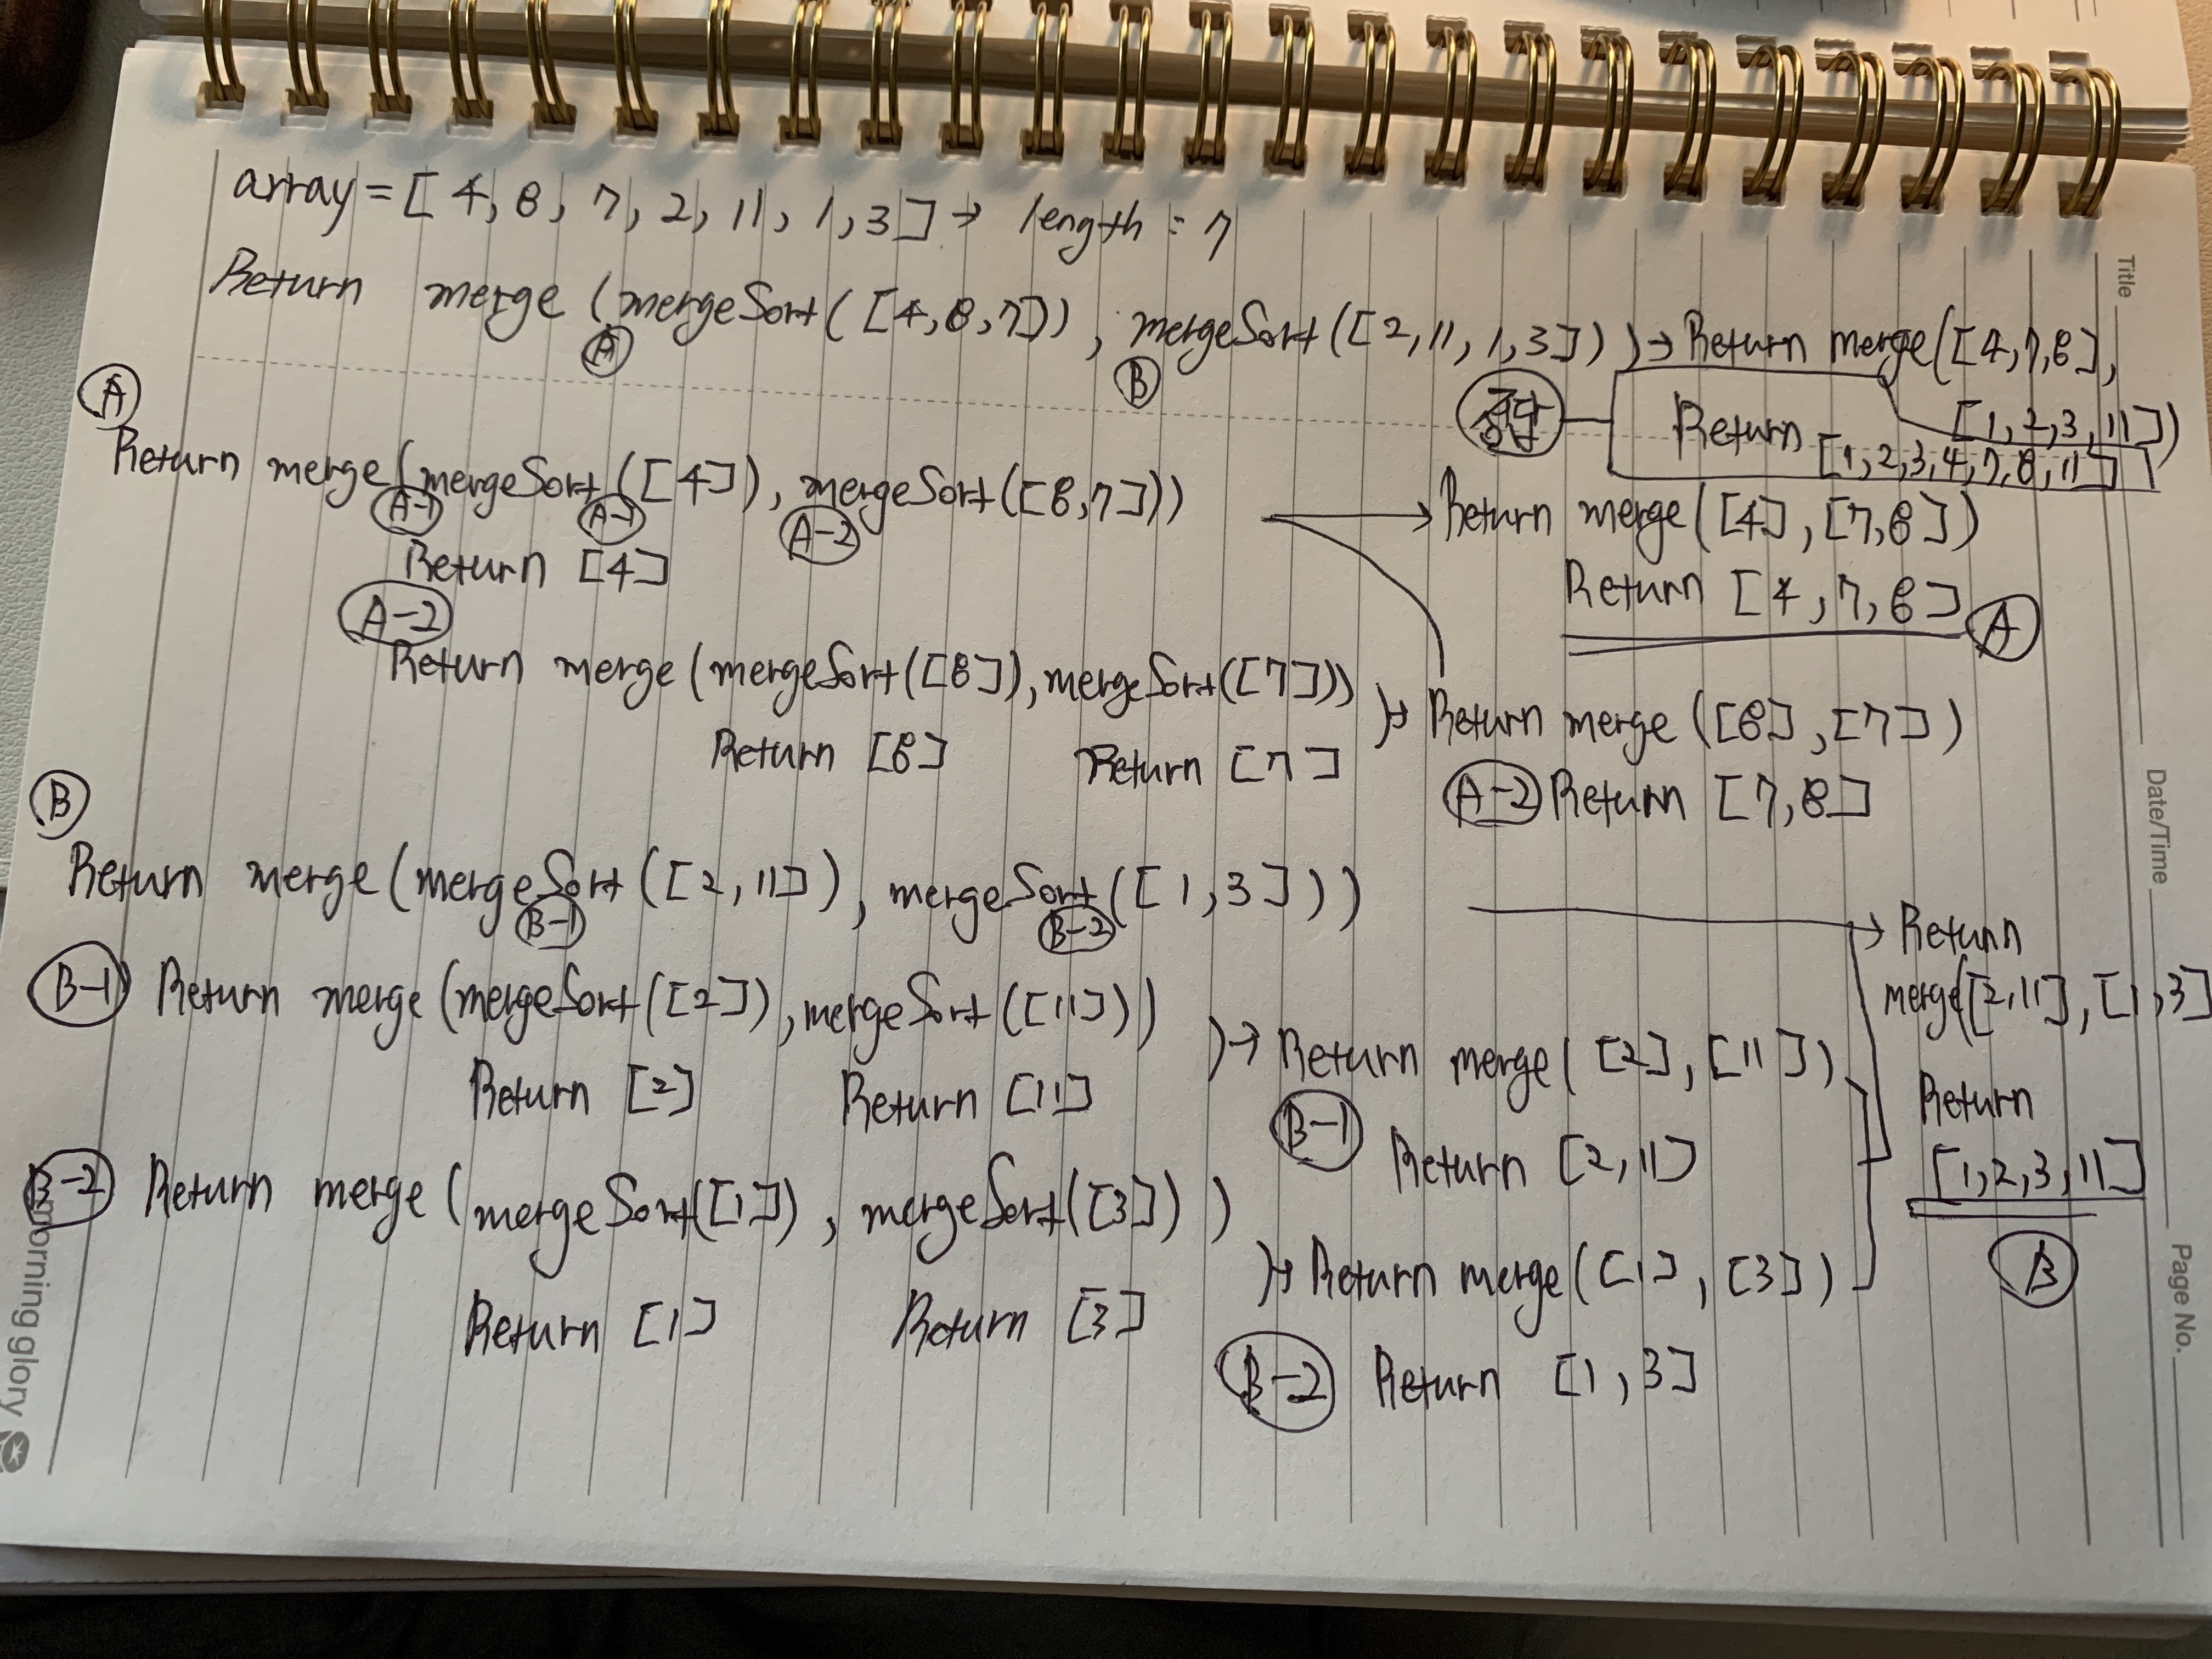 array = [ 4, 8, 7, 2, 11, 1, 3 ] → length = 7
Return merge ( mergeSort ( [4, 8, 7]) , mergeSort ( [2, 11, 1, 3] ) ) → Return merge([4,7,8],
[1,2,3,11])
A
B
정답
Return
[1,2,3,4,7,8,11]
A
Return merge( mergeSort ( [4] ), mergeSort([8,7]))
→ Return merge([4], [7,8])
A-1
A-1
A-2
Return [4]
Return [4,7,8]
A
A-2
Return merge (mergeSort([8]), mergeSort([7])) → Return merge ([8], [7])
Return [8]
Return [7]
A-2 Return [7,8]
B
Return merge (mergeSort ([2, 11]), mergeSort ([1, 3] ))
→ Return
merge([2,11], [1,3]
B-1
B-2
B-1 Return merge (mergeSort ([2]), mergeSort ([11]))
→ Return merge( [2], [11])
Return [2]
Return [11]
B-1
Return [2,11]
Return
[1,2,3,11]
B
B-2 Return merge ( mergeSort([1]), mergeSort([3]) )
→ Return merge( [1], [3])
Return [1]
Return [3]
B-2 Return [1,3]
Title
Date/Time
Page No.
morning glory